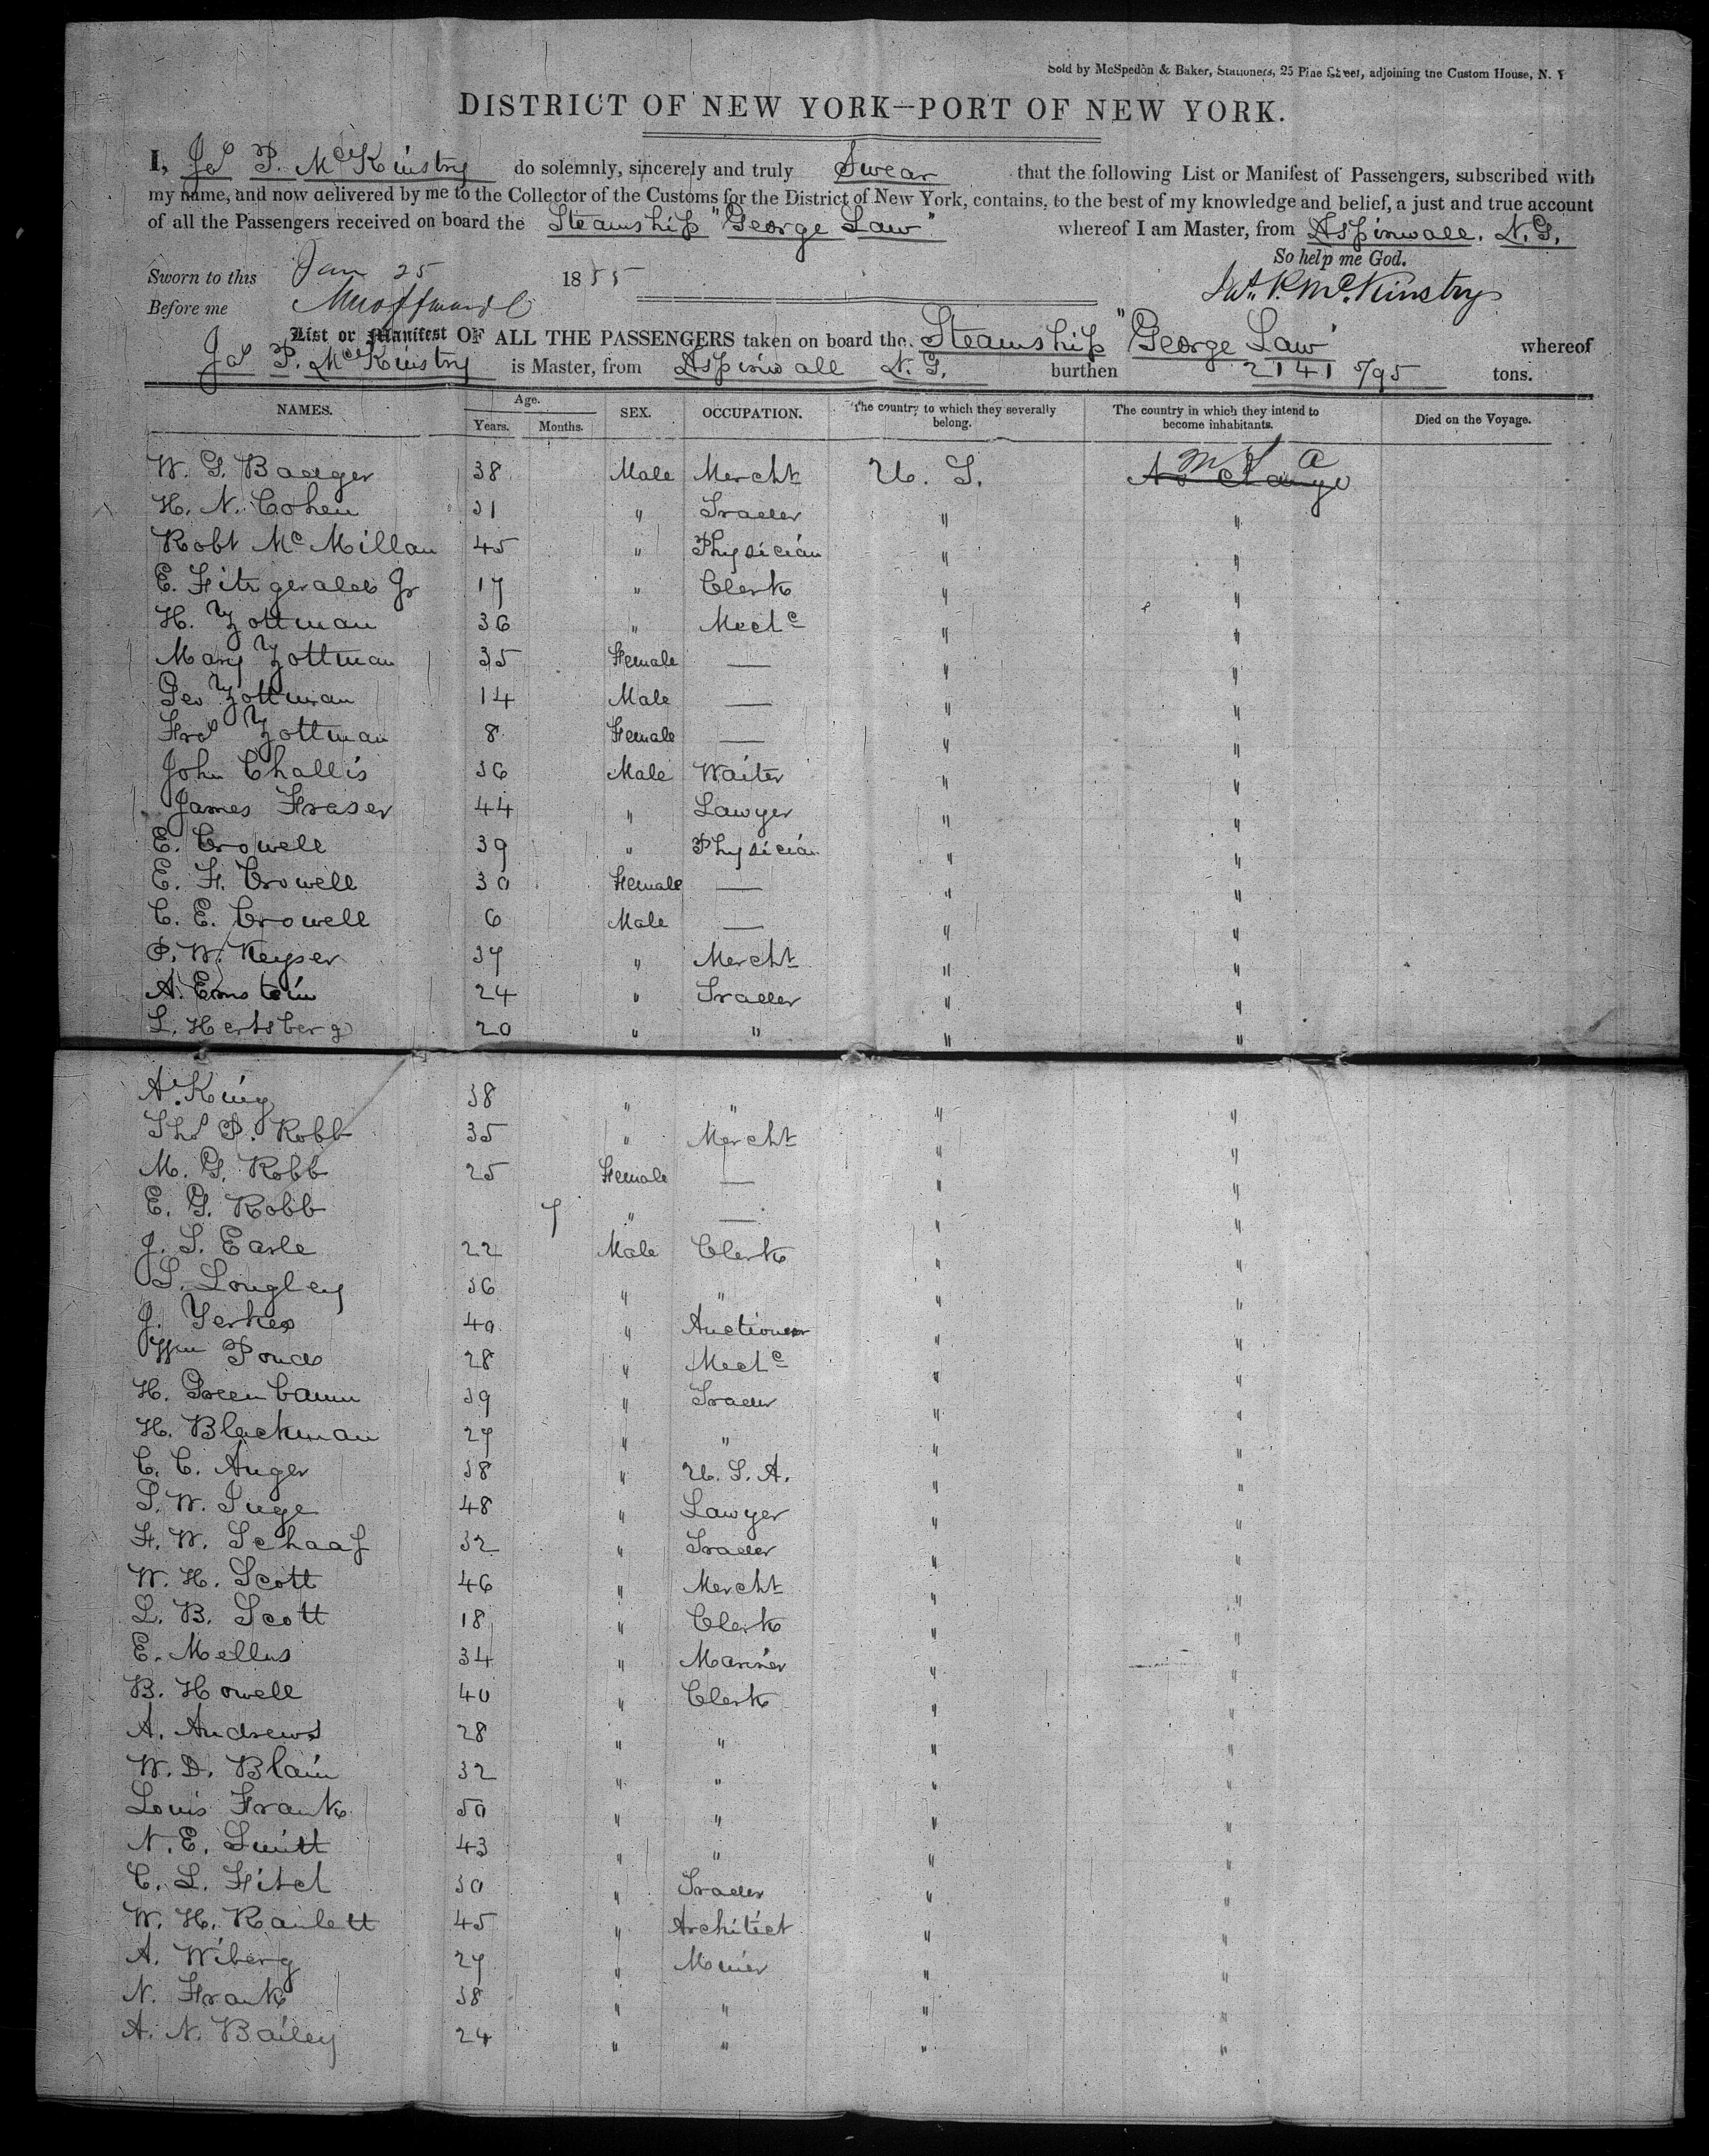 Sold by McSpedon & Baker, Stationers, 25 Pine Street, adjoining the Custom House, N. Y
DISTRICT OF NEW YORK—PORT OF NEW YORK.
I, Jas P. McKinstry do solemnly, sincerely and truly Swear that the following List or Manifest of Passengers, subscribed with
my name, and now delivered by me to the Collector of the Customs for the District of New York, contains, to the best of my knowledge and belief, a just and true account
of all the Passengers received on board the Steamship "George Law" whereof I am Master, from Aspinwall. N. G.
So help me God.
Sworn to this Jan 25 1855
Jas. P. McKinstry
Before me
List or Manifest OF ALL THE PASSENGERS taken on board the Steamship "George Law" whereof
Jas P. McKinstry is Master, from Aspinwall N. G. burthen 2141 5/95 tons.
NAMES. Age. Years. Months. SEX. OCCUPATION. The country to which they severally belong. The country in which they intend to become inhabitants. Died on the Voyage.
W. G. Badger 38 Male Mercht U. S. No change U S A
H. N. Cohen 31 " Trader " "
Robt McMillan 45 " Physician " "
E. Fitzgerald Jr 17 " Clerk " "
H. Zottman 36 " Mechc " "
Mary Zottman 35 Female — " "
Geo Zottman 14 Male — " "
Fras Zottman 8 Female — " "
John Challis 36 Male Waiter " "
James Fraser 44 " Lawyer " "
E. Crowell 39 " Physician " "
E. F. Crowell 30 Female — " "
C. E. Crowell 6 Male — " "
P. W. Keyser 37 " Mercht " "
A. Ernstein 24 " Trader " "
L. Hertsberg 20 " " " "
A. King 38 " " " "
Thos P. Robb 35 " Mercht " "
M. G. Robb 25 Female — " "
E. G. Robb 7 " — " "
J. S. Earle 22 Male Clerk " "
S. Longley 36 " " " "
J. Yerkes 40 " Auctioneer " "
Wm Ponds 28 " Mechc " "
H. Greenbaum 39 " Trader " "
H. Blackman 27 " " " "
C. C. Auger 38 " U. S. A. " "
S. W. Inge 48 " Lawyer " "
F. W. Schaaf 32 " Trader " "
W. H. Scott 46 " Mercht " "
L. B. Scott 18 " Clerk " "
E. Mellus 34 " Mariner " "
B. Howell 40 " Clerk " "
A. Andrews 28 " " " "
W. D. Blain 32 " " " "
Louis Frank 50 " " " "
N. E. Smitt 43 " " " "
C. L. Fitch 30 " Trader " "
W. H. Ranlett 45 " Architect " "
A. Wiberg 27 " Miner " "
N. Frank 38 " " " "
A. N. Bailey 24 " " " "